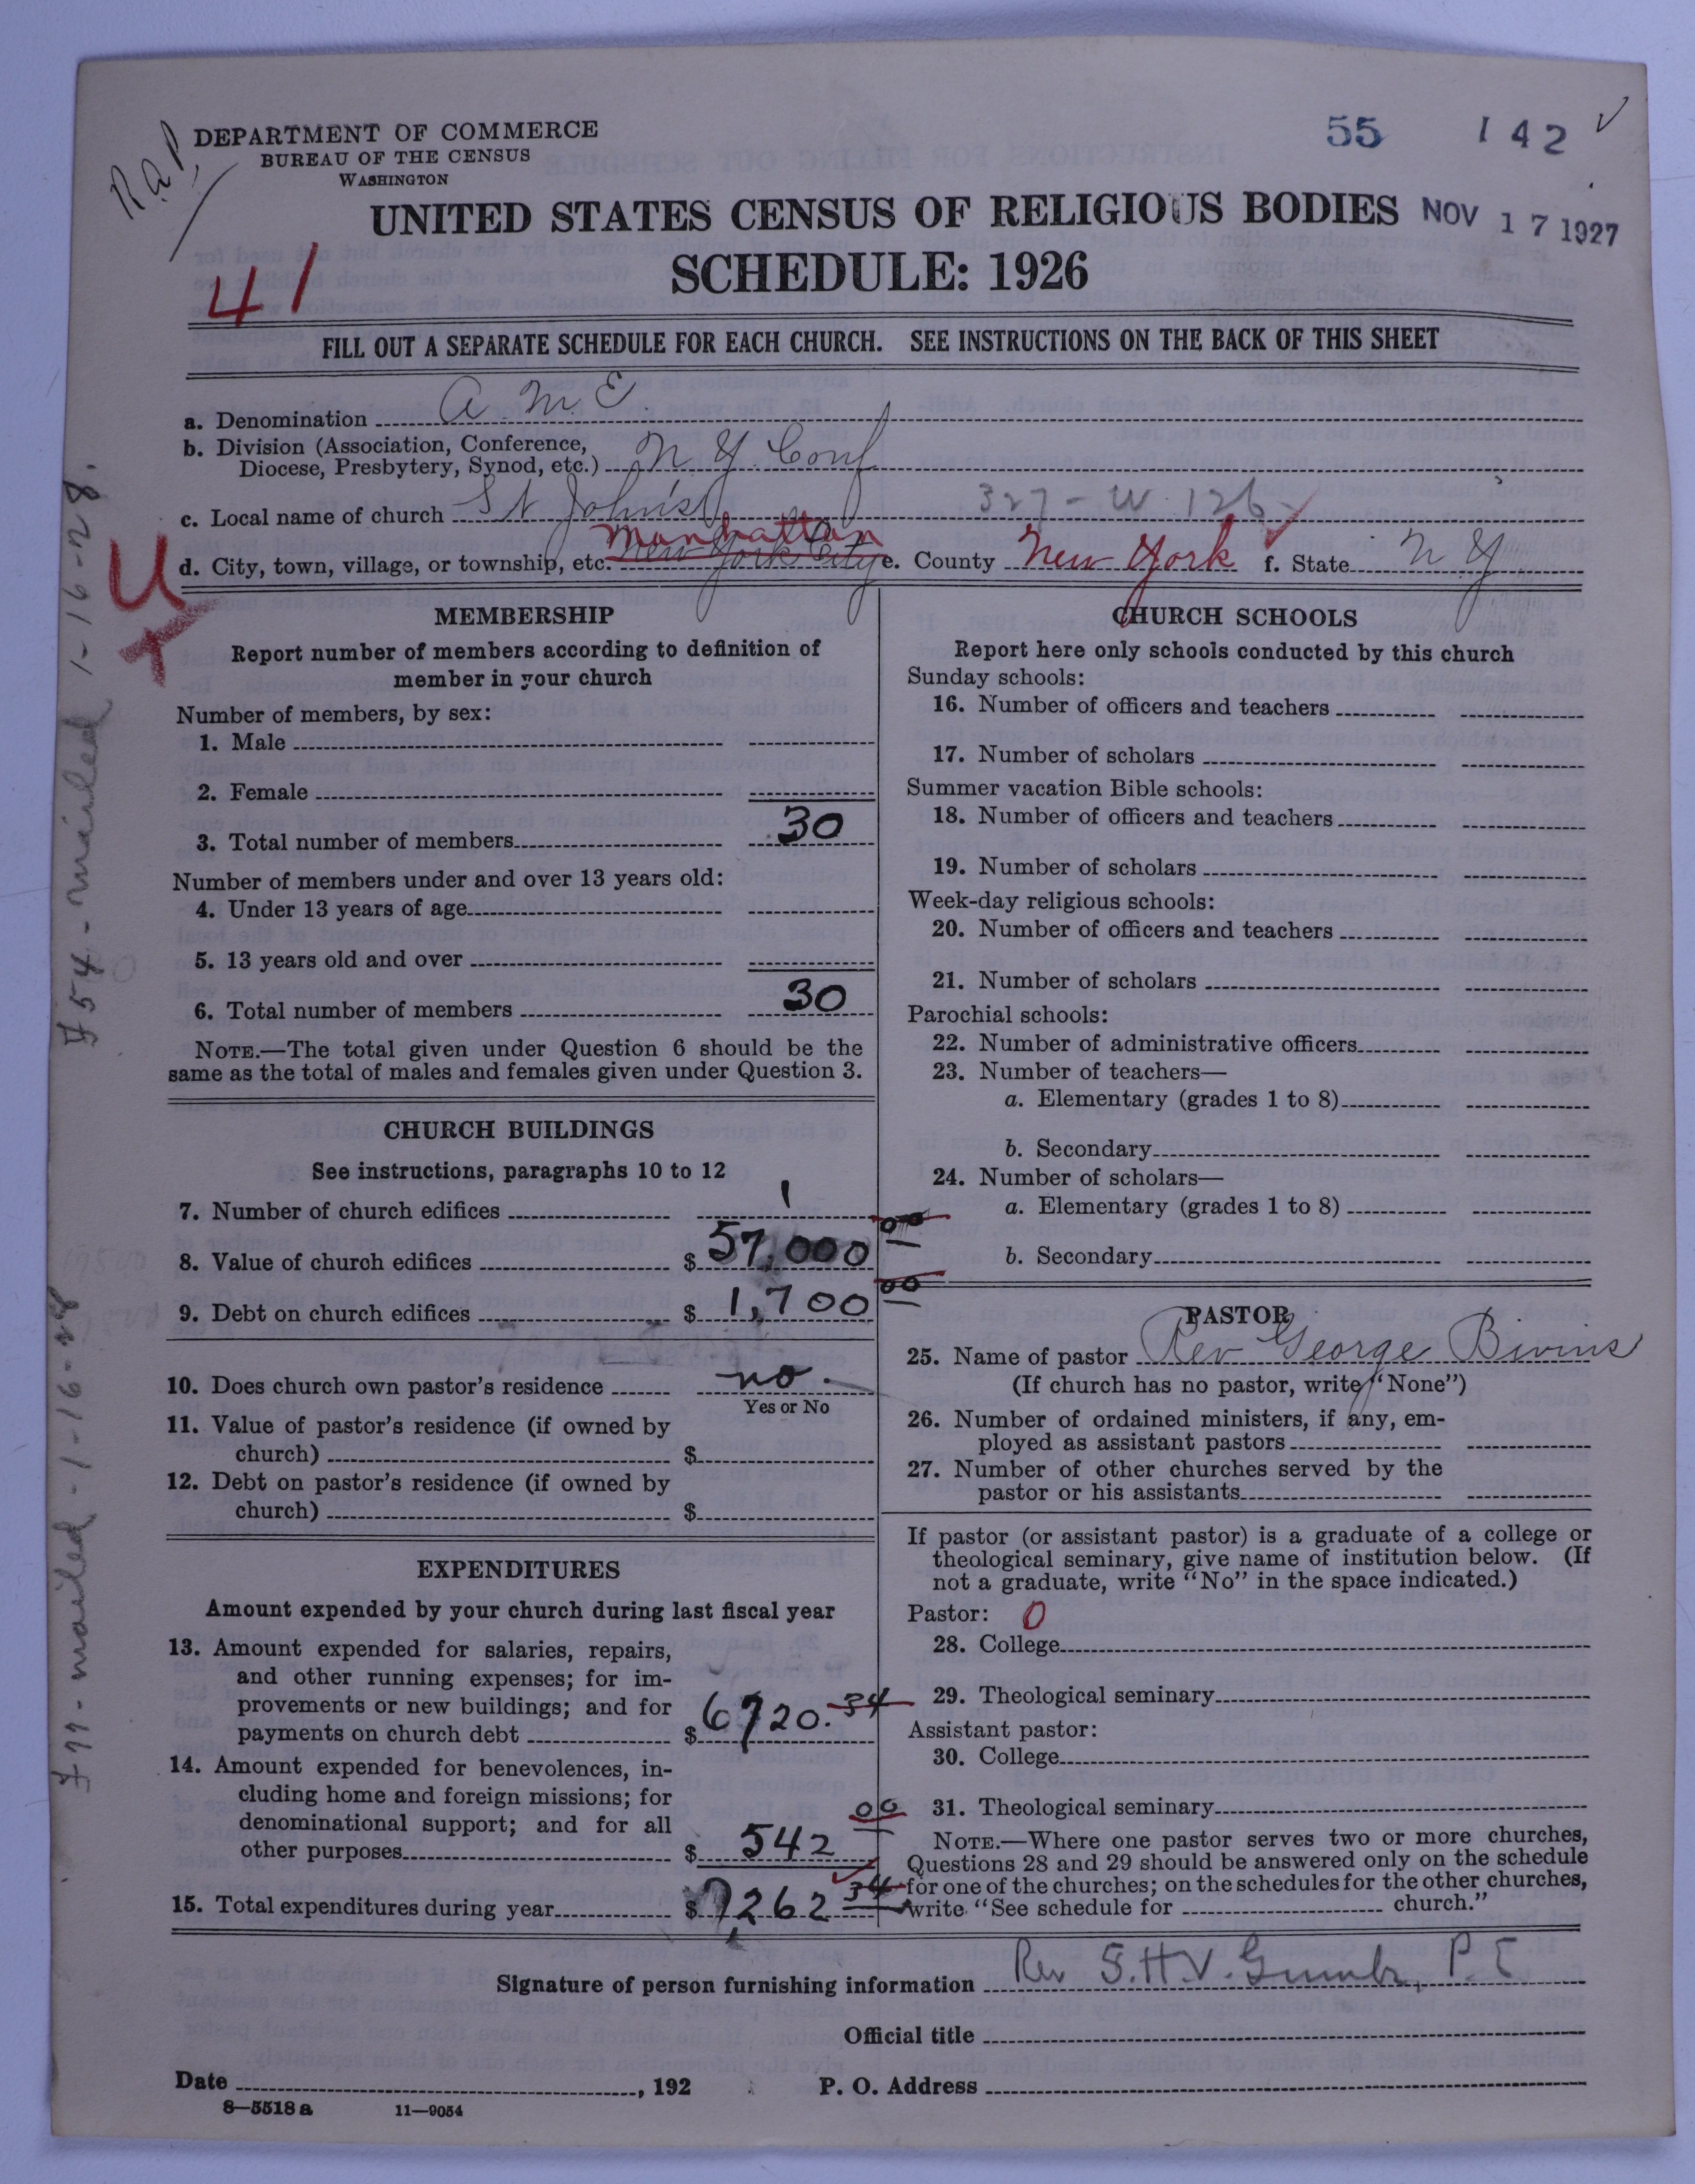 R.a.P.
DEPARTMENT OF COMMERCE
BUREAU OF THE CENSUS
WASHINGTON
55 142 ✓
UNITED STATES CENSUS OF RELIGIOUS BODIES
NOV 17 1927
SCHEDULE: 1926
41
FILL OUT A SEPARATE SCHEDULE FOR EACH CHURCH. SEE INSTRUCTIONS ON THE BACK OF THIS SHEET
a. Denomination A M E.
b. Division (Association, Conference,
Diocese, Presbytery, Synod, etc.) N. Y. Conf
c. Local name of church St John's 327 - W. 126
Manhattan
d. City, town, village, or township, etc. New York City e. County New York f. State N Y
U
X
754 - mailed 1-16-28.
777 - mailed - 1-16-28
MEMBERSHIP
Report number of members according to definition of
member in your church
Number of members, by sex:
1. Male
2. Female
3. Total number of members 30
Number of members under and over 13 years old:
4. Under 13 years of age
5. 13 years old and over
6. Total number of members 30
NOTE.—The total given under Question 6 should be the
same as the total of males and females given under Question 3.
CHURCH BUILDINGS
See instructions, paragraphs 10 to 12
7. Number of church edifices 1
8. Value of church edifices $ 57,000 00
9. Debt on church edifices $ 1,700 00
10. Does church own pastor's residence no.
Yes or No
11. Value of pastor's residence (if owned by
church) $
12. Debt on pastor's residence (if owned by
church) $
EXPENDITURES
Amount expended by your church during last fiscal year
13. Amount expended for salaries, repairs,
and other running expenses; for im-
provements or new buildings; and for
payments on church debt $ 6720.34
14. Amount expended for benevolences, in-
cluding home and foreign missions; for
denominational support; and for all
other purposes $ 542 00
15. Total expenditures during year $ 7,262 34
CHURCH SCHOOLS
Report here only schools conducted by this church
Sunday schools:
16. Number of officers and teachers
17. Number of scholars
Summer vacation Bible schools:
18. Number of officers and teachers
19. Number of scholars
Week-day religious schools:
20. Number of officers and teachers
21. Number of scholars
Parochial schools:
22. Number of administrative officers
23. Number of teachers—
a. Elementary (grades 1 to 8)
b. Secondary
24. Number of scholars—
a. Elementary (grades 1 to 8)
b. Secondary
PASTOR
25. Name of pastor Rev George Bivins
(If church has no pastor, write "None")
26. Number of ordained ministers, if any, em-
ployed as assistant pastors
27. Number of other churches served by the
pastor or his assistants
If pastor (or assistant pastor) is a graduate of a college or
theological seminary, give name of institution below. (If
not a graduate, write "No" in the space indicated.)
Pastor: 0
28. College
29. Theological seminary
Assistant pastor:
30. College
31. Theological seminary
NOTE.—Where one pastor serves two or more churches,
Questions 28 and 29 should be answered only on the schedule
for one of the churches; on the schedules for the other churches,
write "See schedule for church."
Signature of person furnishing information Rev S.H.V. Gumbs, P. E
Official title
Date , 192 P. O. Address
8—5518 a 11—9054